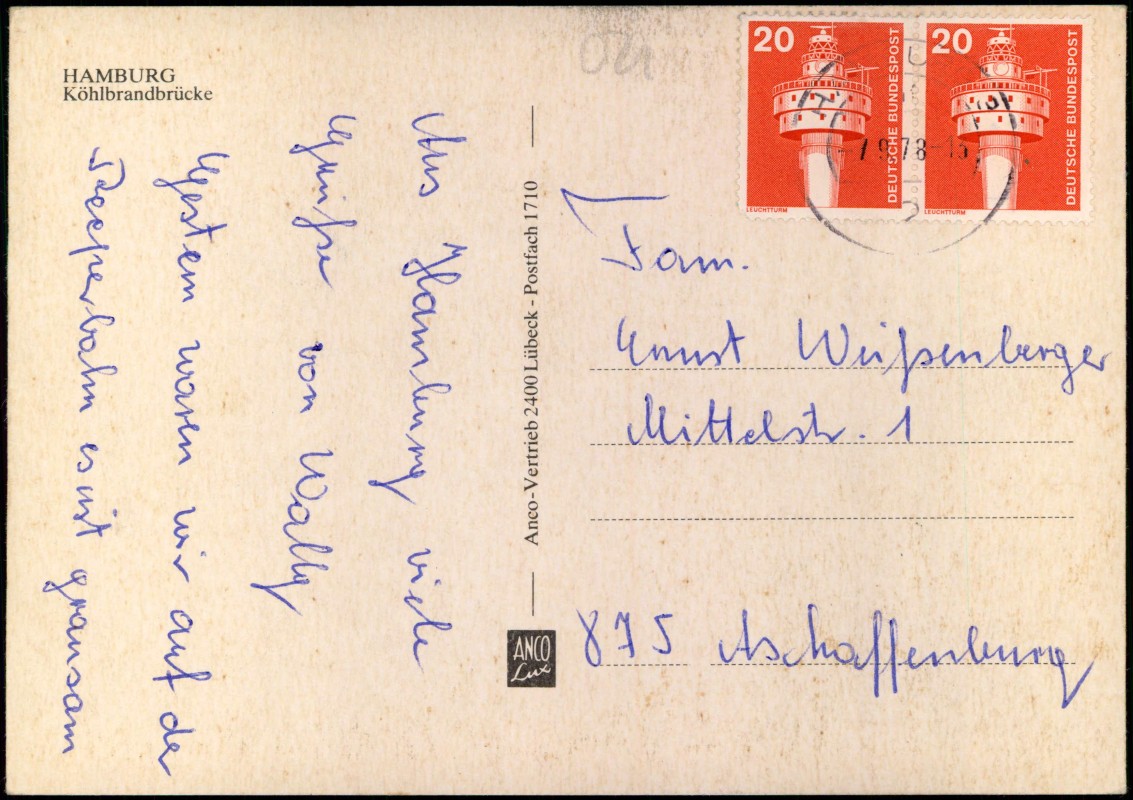 HAMBURG
Köhlbrandbrücke
Aus Hamburg viele
Grüße von Wally
Gestern waren wir auf der
Reeperbahn es ist grausam
Anco-Vertrieb 2400 Lübeck - Postfach 1710
ANCO
Lux
20
DEUTSCHE BUNDESPOST
LEUCHTTURM
20
DEUTSCHE BUNDESPOST
LEUCHTTURM
-7.9.78-15
Fam.
Ernst Weißenberger
Mittelstr. 1
875 Aschaffenburg